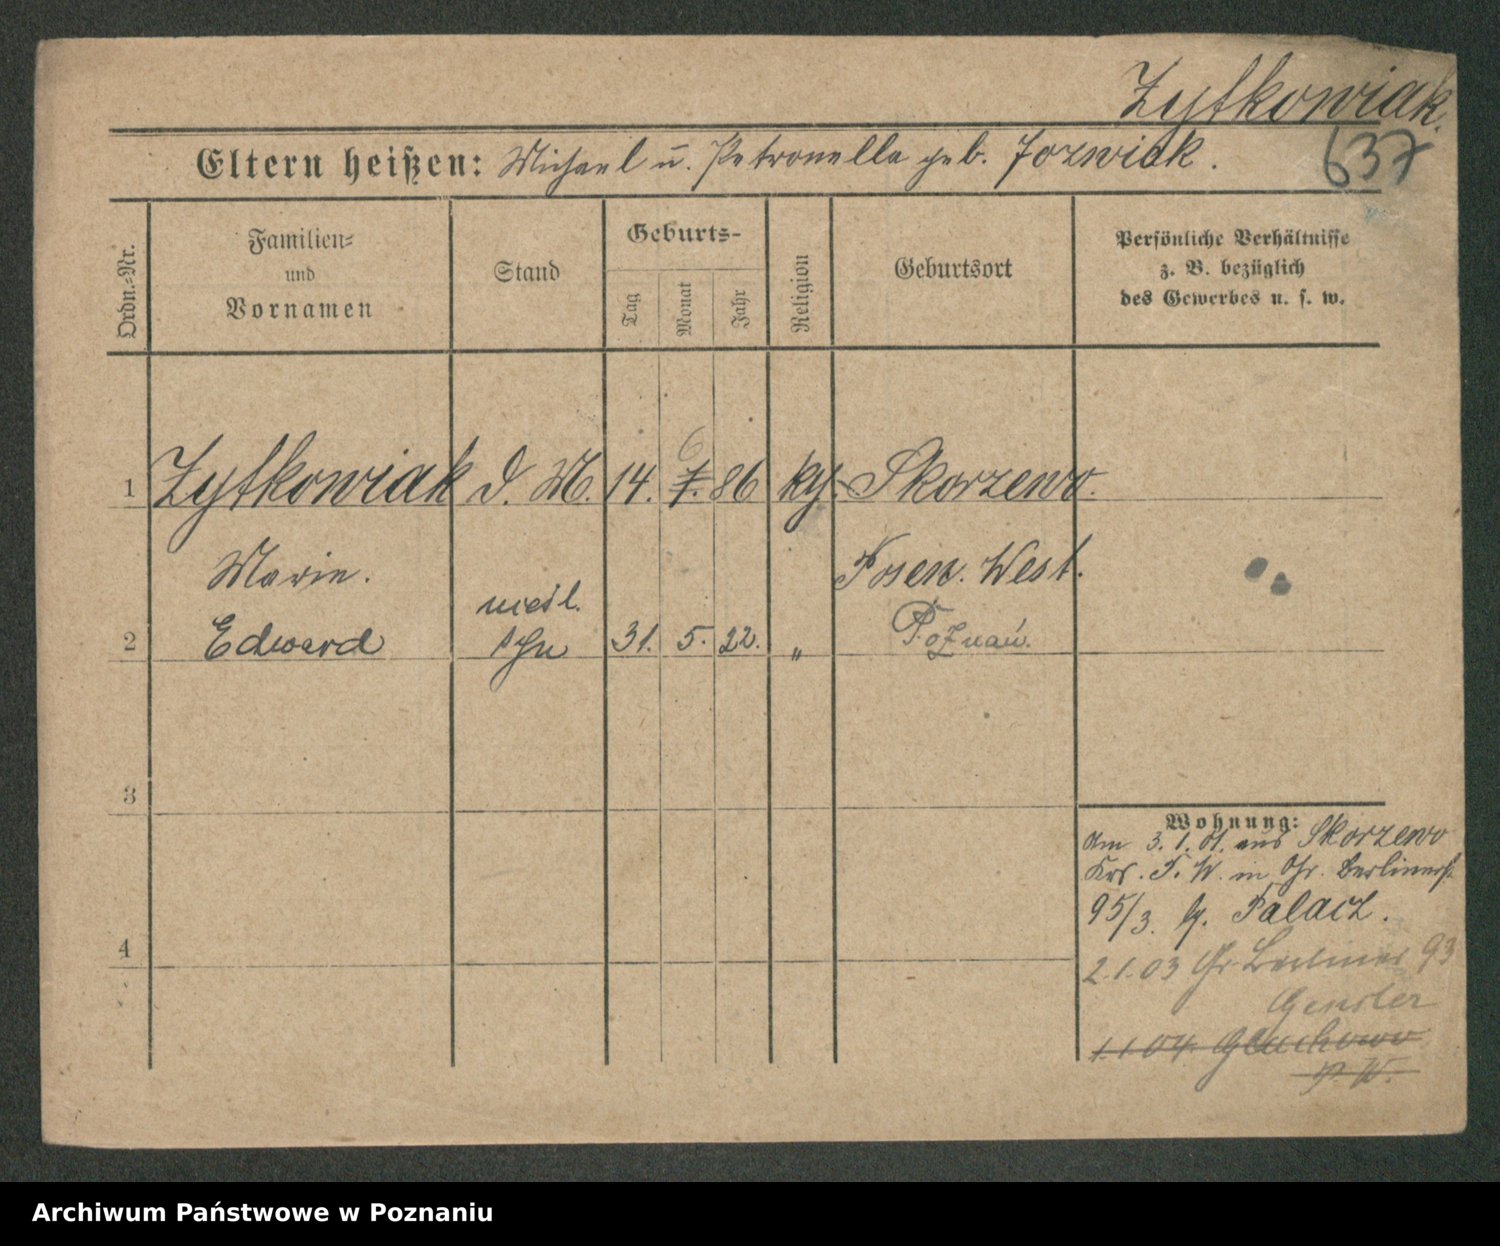 Zytkowiak.
637
Eltern heißen: Michael u. Petronella geb. Jozwiak.
Ordn.-Nr.
Familien-
und
Vornamen
Stand
Geburts-
Tag
Monat
Jahr
Religion
Geburtsort
Persönliche Verhältnisse
z. B. bezüglich
des Gewerbes u. s. w.
1 Zytkowiak D. M. 14. 7. 86 Skorzewo.
6
Marie. Posen. West.
2 Edward 31. 5. 22. " Poznań.
3
4
Wohnung:
Am 3. 1. 01. aus Skorzewo
Krs. P. W. in Gr. Berlinerst.
95/3. b/. Palacz.
2.1.03 Gr Berliner 93
Gensler
1.1 04. Gluchowo
P. W.
Archiwum Państwowe w Poznaniu